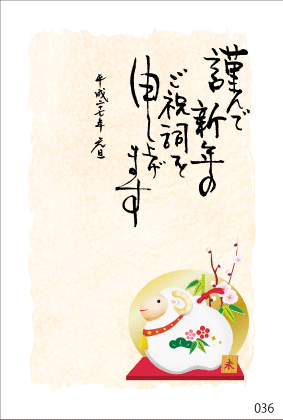 謹んで
新年の
ご祝詞を
申し上げ
ます
平成二十七年 元旦
未
036